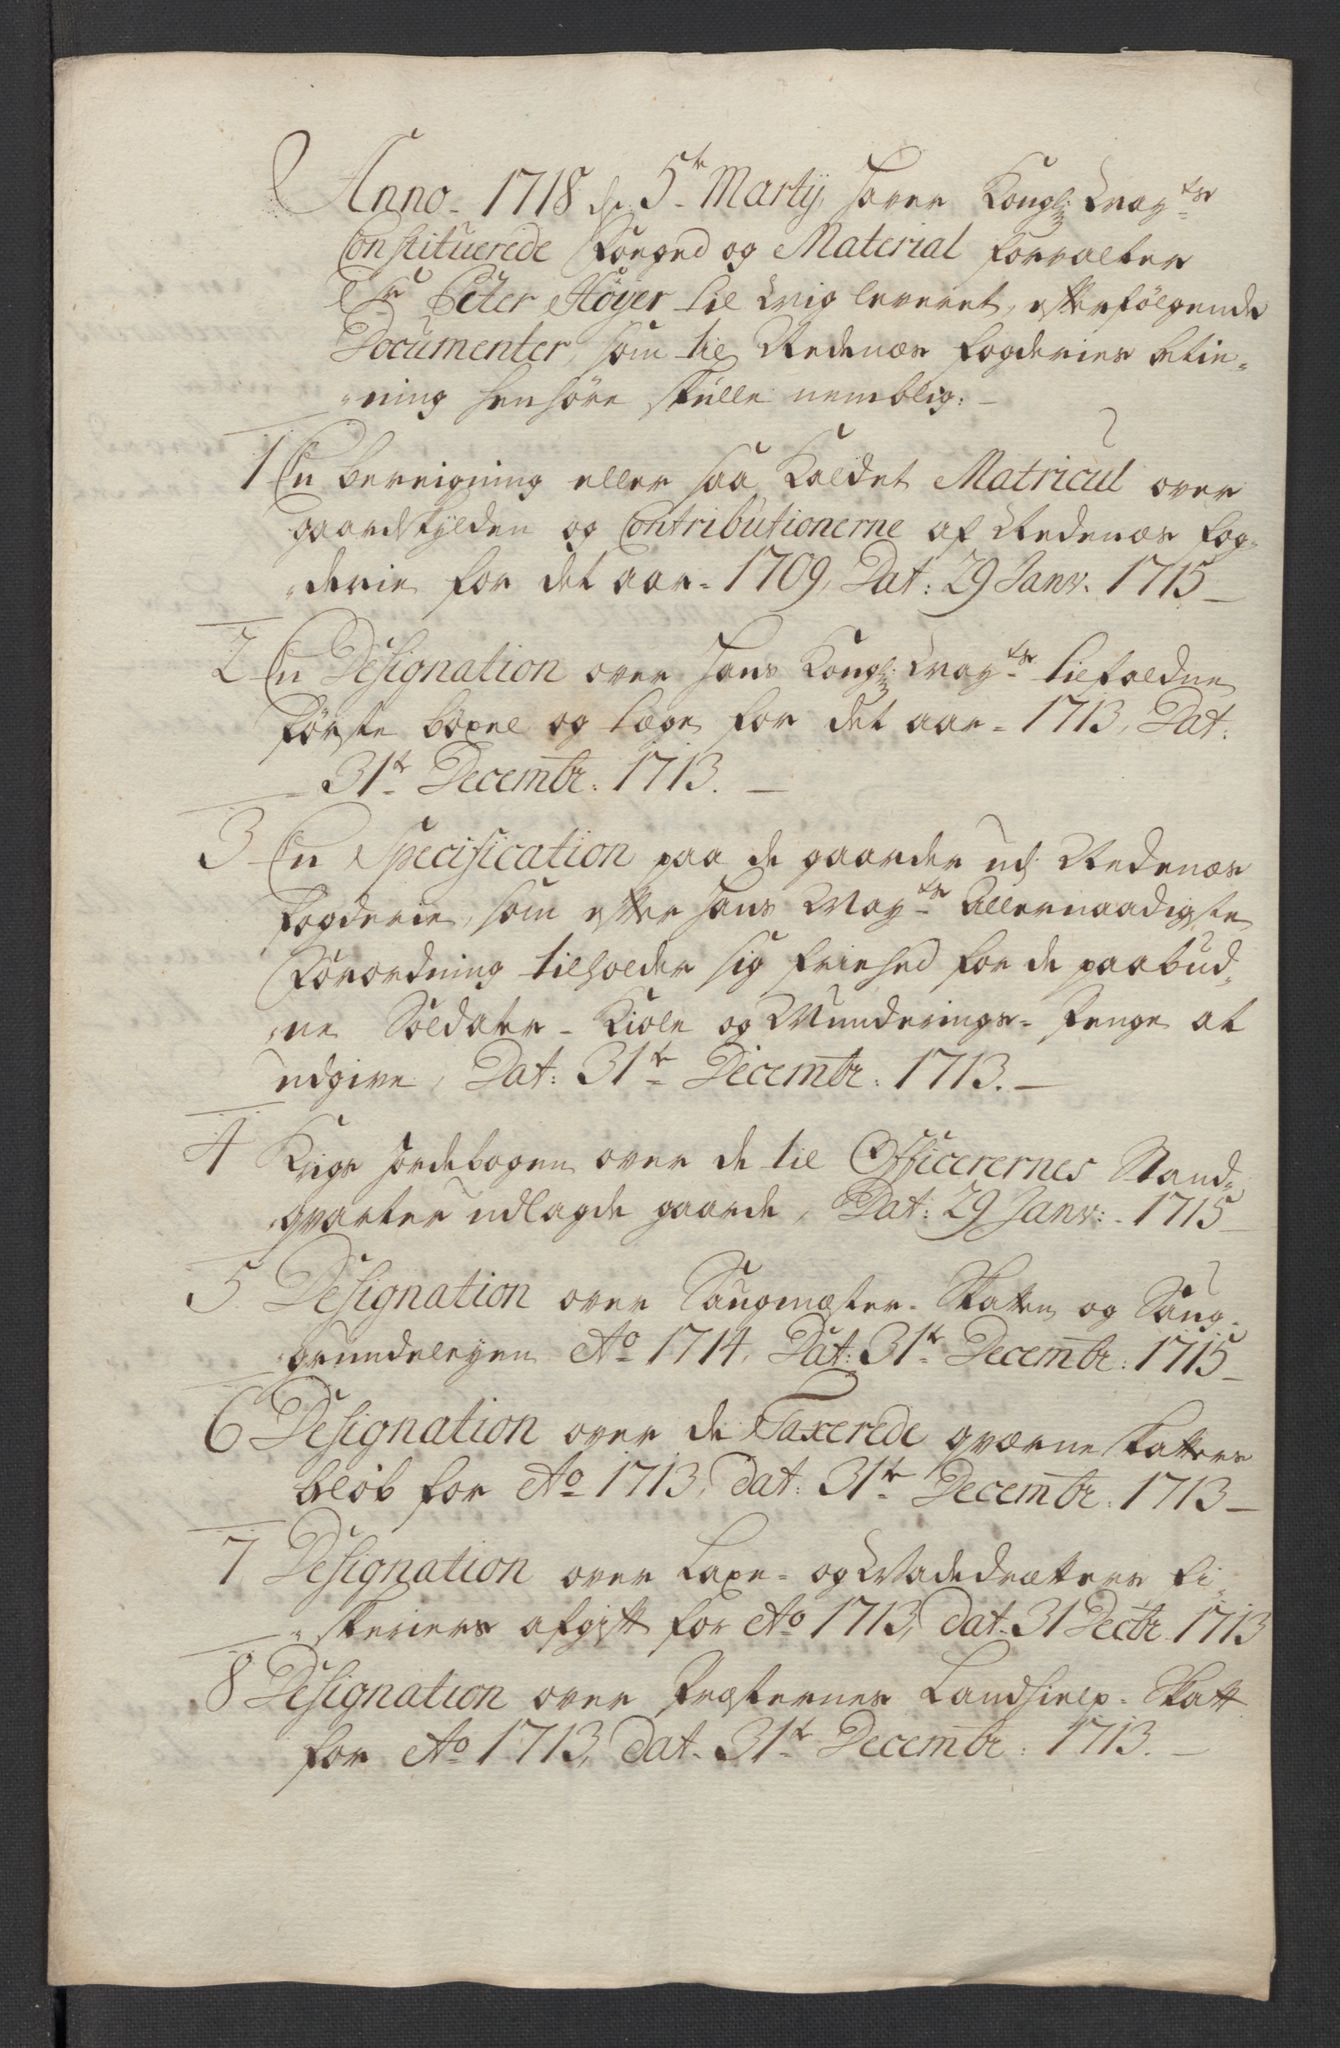 Anno 1718 d: 5te Martij, haver Kongl: May:ts
Constituerede Foeged og Material forvalter
Sr Peter Höyer til mig leveret, efterfølgende
Documenter, som til Nedenæs fogderies betie-
ning henhöre skulle nemblig:
1 En bereigning eller saa kaldet Matricul over
gaardskylden og Contributionerne af Nedenæs fog-
derie for det aar 1709, Dat: 29 Janv. 1715
2 En Designation over hans Kongl: May:ts tilfaldne
förste böxel og tæge for det aar 1713, Dat:
31te Decembr: 1713.
3 En Specification paa de gaarder udj Nedenæs
fogderie, som efter hans May:ts Allernaadigste
Forordning tilholder sig friehed for de paabud-
ne Soldater-Kiole og Munderings-Penge at
udgive, Dat: 31te Decembr: 1713.
4 Krigs Jordebogen over de til Officerernes Stand-
qvarter udlagde gaarde, Dat: 29 Janv: 1715
5 Designation over Saugmester-Skatten og Saug-
grundeleyen Ao 1714, Dat: 31te Decembr: 1715
6 Designation over de Taxerede qværne skatters
beløb for Ao 1713, dat: 31te Decembr: 1713
7 Designation over Laxe- og Wadedrætters fi-
skeriers afgift for Ao 1713, dat. 31 Decbr. 1713
8 Designation over Præsternes Landhielp-Skatt
for Ao 1713, dat. 31te Decembr: 1713.